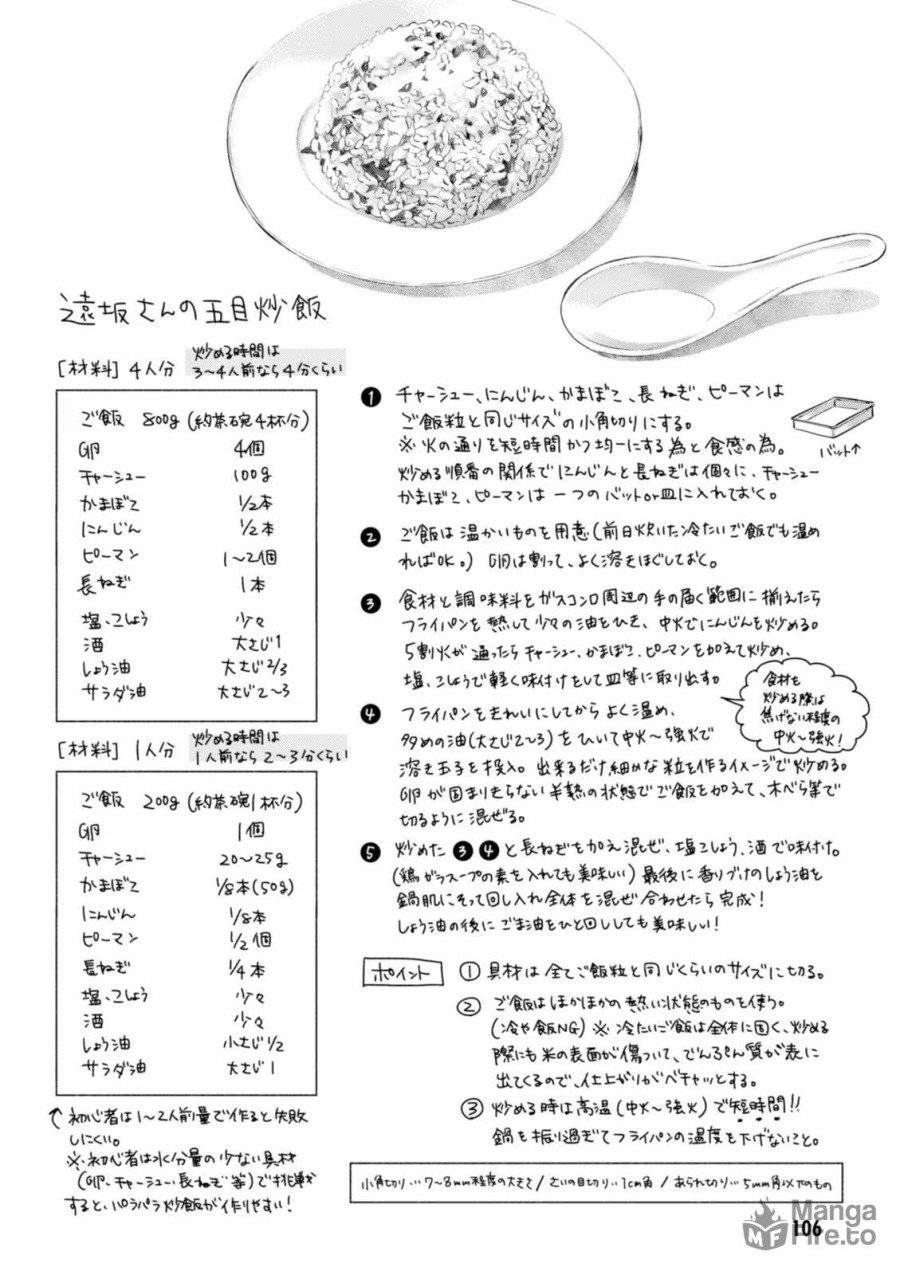 遠坂さんの五目炒飯
[材料] 4人分
炒める時間は
3~4人前なら4分くらい
ご飯 800g (約茶碗4杯分)
卵 4個
チャーシュー 100g
かまぼこ 1/2本
にんじん 1/2本
ピーマン 1~2個
長ねぎ 1本
塩、こしょう 少々
酒 大さじ1
しょう油 大さじ2/3
サラダ油 大さじ2~3
[材料] 1人分
炒める時間は
1人前なら2~3分くらい
ご飯 200g (約茶碗1杯分)
卵 1個
チャーシュー 20~25g
かまぼこ 1/8本(50g)
にんじん 1/8本
ピーマン 1/2個
長ねぎ 1/4本
塩、こしょう 少々
酒 少々
しょう油 小さじ1/2
サラダ油 大さじ1
↑初心者は1~2人前量で作ると失敗
しにくい。
※初心者は水分量の少ない具材
(卵・チャーシュー・長ねぎ等)で挑戦
すると、パラパラ炒飯が作りやすい!
❶ チャーシュー、にんじん、かまぼこ、長ねぎ、ピーマンは
ご飯粒と同じサイズの小角切りにする。
※火の通りを短時間かつ均一にする為と食感の為。
炒める順番の関係でにんじんと長ねぎは個々に、チャーシュー
かまぼこ、ピーマンは一つのバットor皿に入れておく。
バット↑
❷ ご飯は温かいものを用意(前日炊いた冷たいご飯でも温め
ればOK。) 卵は割って、よく溶きほぐしておく。
❸ 食材と調味料をガスコンロ周辺の手の届く範囲に揃えたら
フライパンを熱して少々の油をひき、中火でにんじんを炒める。
5割火が通ったらチャーシュー、かまぼこ、ピーマンを加えて炒め、
塩、こしょうで軽く味付けをして皿等に取り出す。
食材を
炒める際は
焦げない程度の
中火~強火!
❹ フライパンをきれいにしてからよく温め、
多めの油(大さじ2~3)をひいて中火~強火で
溶き玉子を投入。出来るだけ細かな粒を作るイメージで炒める。
卵が固まりきらない半熟の状態でご飯を加えて、木べら等で
切るように混ぜる。
❺ 炒めた❸❹と長ねぎを加え混ぜ、塩こしょう、酒で味付け。
(鶏がらスープの素を入れても美味しい) 最後に香りづけのしょう油を
鍋肌にそって回し入れ全体を混ぜ合わせたら完成!
しょう油の後にごま油をひと回ししても美味しい!
ポイント
① 具材は全てご飯粒と同じくらいのサイズに切る。
② ご飯はほかほかの熱い状態のものを使う。
(冷や飯NG) ※冷たいご飯は全体に固く、炒める
際にも米の表面が傷ついて、でんぷん質が表に
出てくるので、仕上がりがベチャッとする。
③ 炒める時は高温(中火~強火)で短時間!!
鍋を振り過ぎてフライパンの温度を下げないこと。
小角切り…7~8mm程度の大きさ/さいの目切り…1cm角/あられ切り…5mm角以下のもの
106
MF
Manga
Fire.to